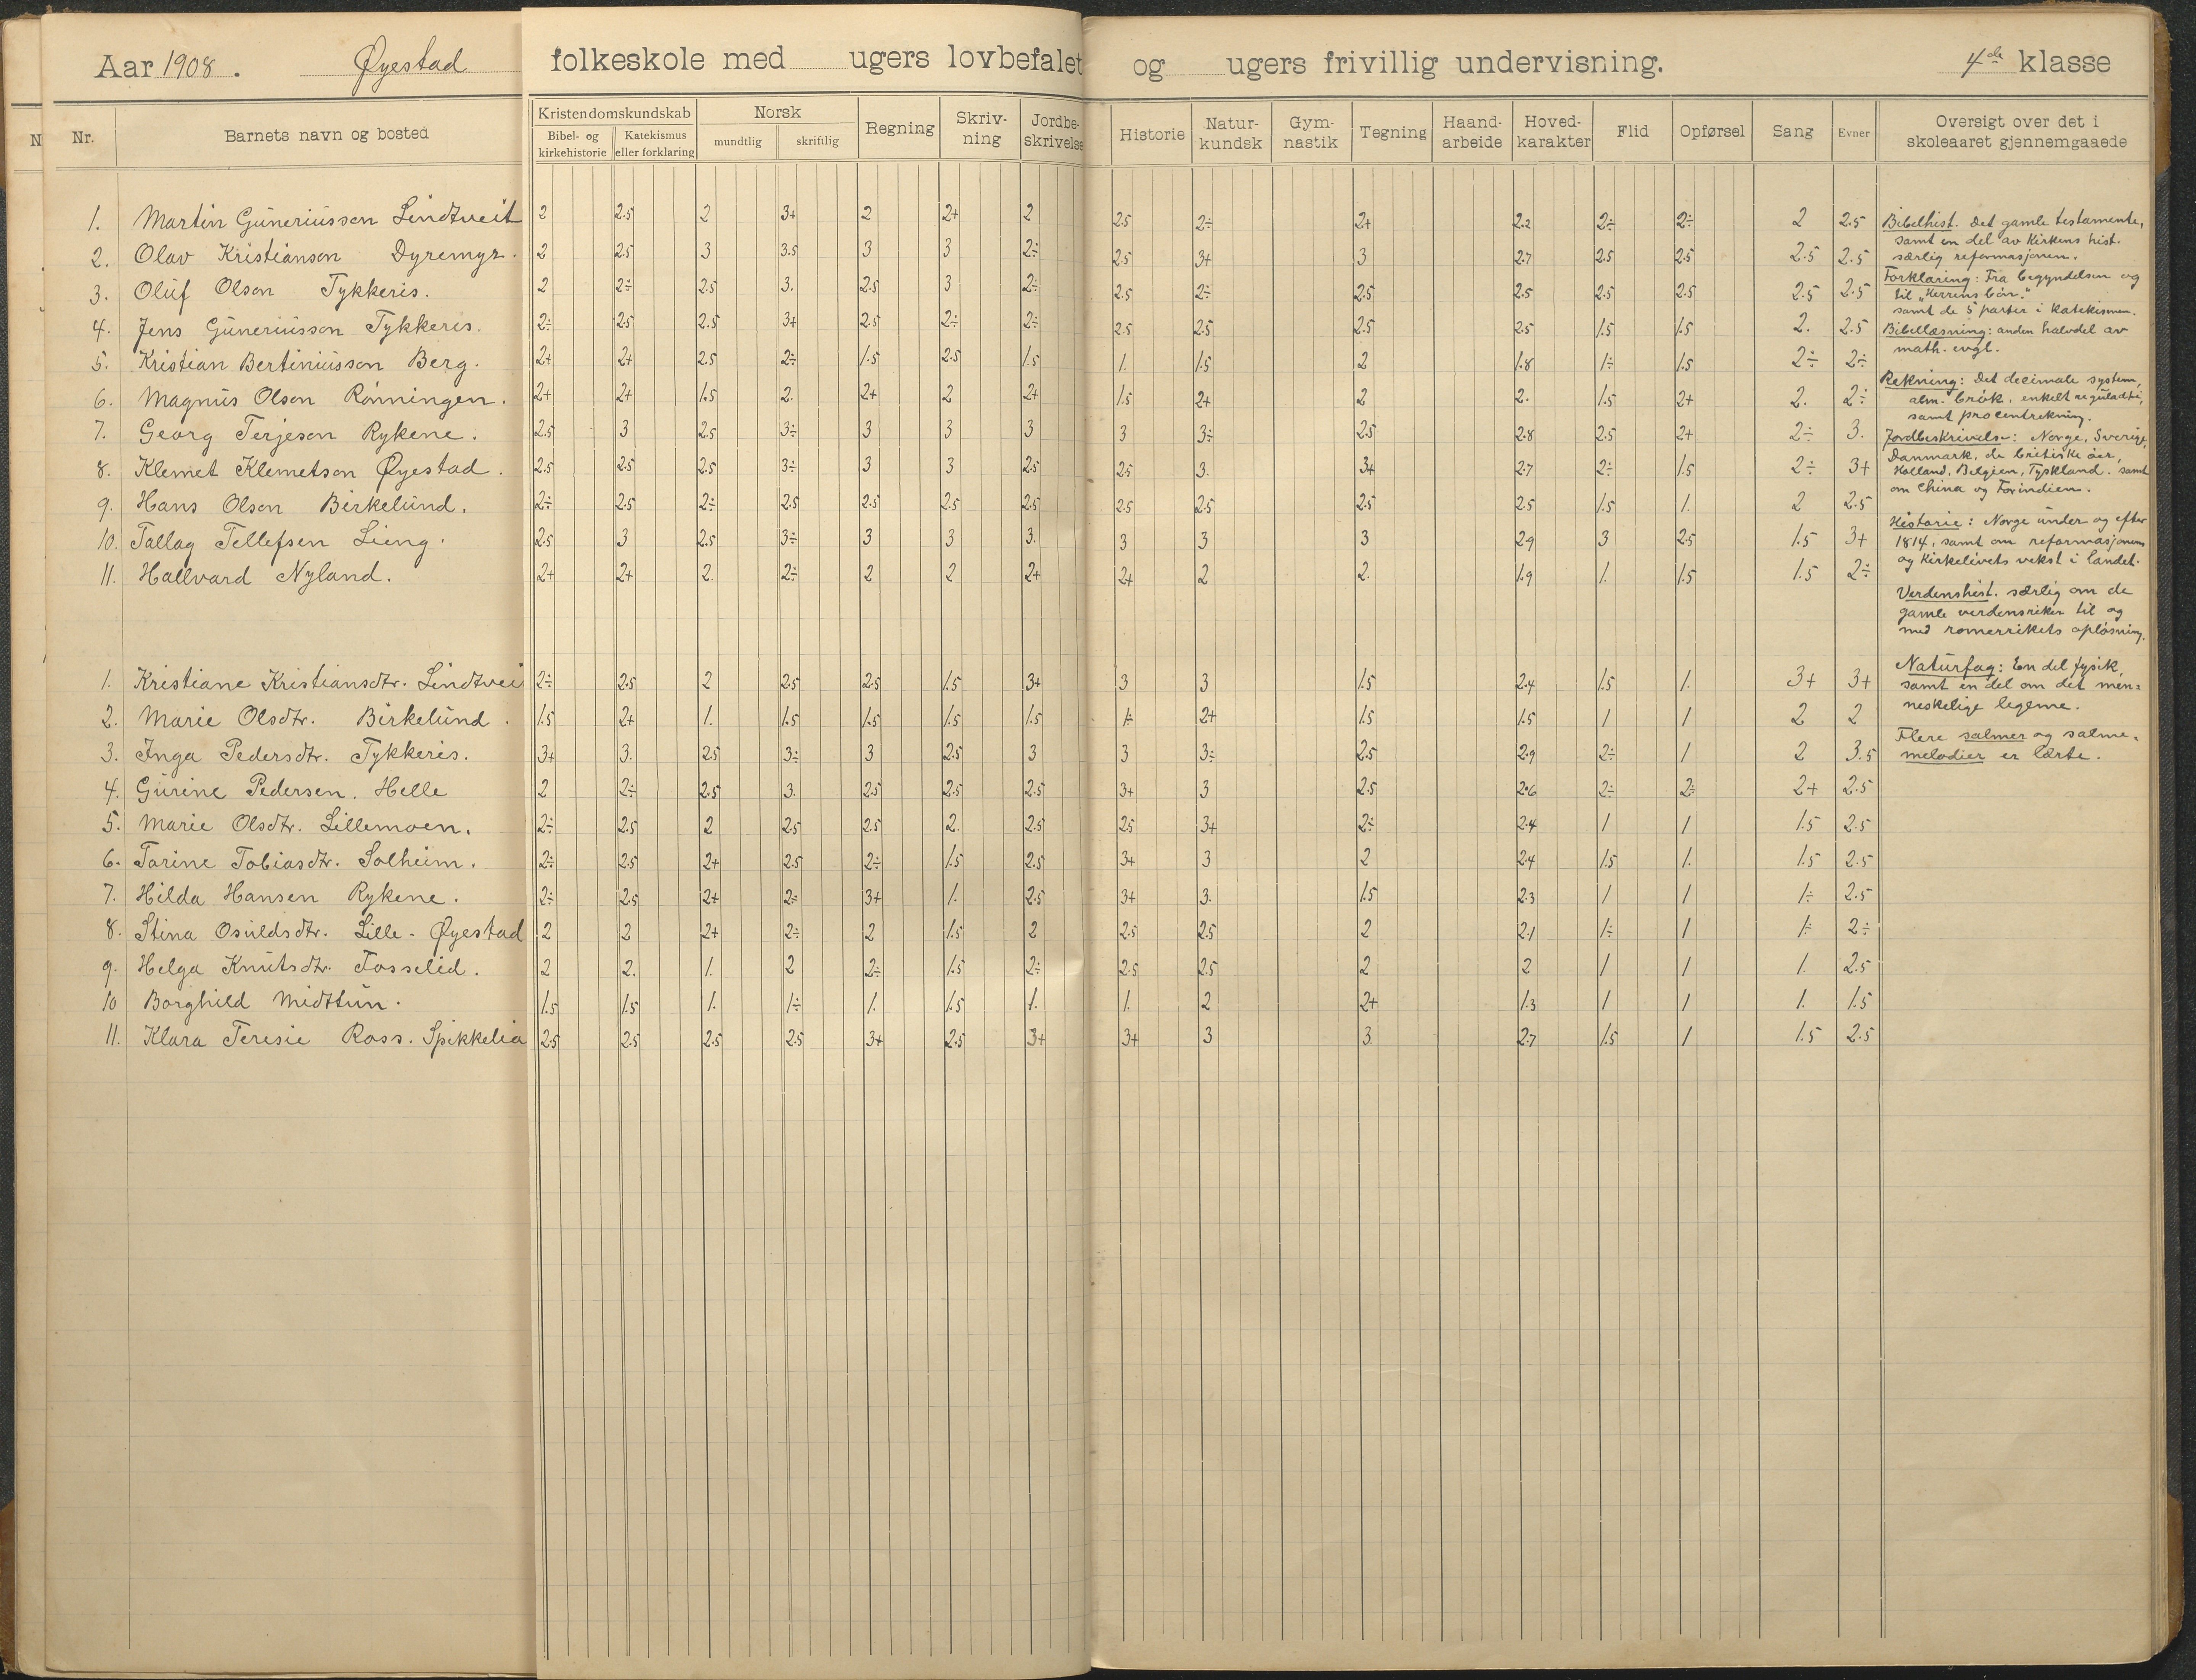 Aar 1908. Øyestad folkeskole med ugers lovbefalet og ugers frivillig undervisning. 4de klasse
Nr. Barnets navn og bosted Kristendomskundskab Bibel- og kirkehistorie Katekismus eller forklaring Norsk mundtlig skriftlig Regning Skriv-ning Jordbe-skrivelse Historie Natur-kundsk Gym-nastik Tegning Haand-arbeide Hoved-karakter Flid Opførsel Sang Evner Oversigt over det i skoleaaret gjennemgaaede
N
1. Martin Guneriusson Lindtveit 2 2.5 2 3+ 2 2+ 2 2.5 2÷ 2+ 2.2 2÷ 2÷ 2 2.5
2. Olav Kristianson Dyremyr. 2 2.5 3 3.5 3 3 2÷ 2.5 3+ 3 2.7 2.5 2.5 2.5 2.5
3. Oluf Olson Tykkeris. 2 2÷ 2.5 3. 2.5 3 2÷ 2.5 2÷ 2.5 2.5 2.5 2.5 2.5 2.5
4. Jens Guneriusson Tykkeris. 2÷ 2.5 2.5 3+ 2.5 2÷ 2÷ 2.5 2.5 2.5 2.5 1.5 1.5 2. 2.5
5. Kristian Bertiniusson Berg. 2+ 2+ 2.5 2÷ 1.5 2.5 1.5 1. 1.5 2 1.8 1÷ 1.5 2÷ 2÷
6. Magnus Olson Rønningen. 2+ 2+ 1.5 2. 2+ 2 2+ 1.5 2+ 2 2. 1.5 2+ 2. 2÷
7. Georg Terjeson Rykene. 2.5 3 2.5 3÷ 3 3 3 3 3÷ 2.5 2.8 2.5 2+ 2÷ 3.
8. Klemet Klemetson Øyestad. 2.5 2.5 2.5 3÷ 3 3 2.5 2.5 3. 3+ 2.7 2÷ 1.5 2÷ 3+
9. Hans Olson Birkelund. 2÷ 2.5 2÷ 2.5 2.5 2.5 2.5 2.5 2.5 2.5 2.5 1.5 1. 2 2.5
10. Tallag Tellefsen Lieng. 2.5 3 2.5 3÷ 3 3 3. 3 3 3 2.9 3 2.5 1.5 3+
11. Hallvard Nyland. 2+ 2+ 2. 2÷ 2 2 2+ 2+ 2 2. 1.9 1. 1.5 1.5 2÷
1. Kristiane Kristiansdtr. Lindtvei 2÷ 2.5 2 2.5 2.5 1.5 3+ 3 3 1.5 2.4 1.5 1. 3+ 3+
2. Marie Olsdtr. Birkelund. 1.5 2+ 1. 1.5 1.5 1.5 1.5 1÷ 2+ 1.5 1.5 1 1 2 2
3. Inga Pedersdtr. Tykkeris. 3+ 3. 2.5 3÷ 3 2.5 3 3 3÷ 2.5 2.9 2÷ 1 2 3.5
4. Gurine Pedersen. Helle 2 2÷ 2.5 3. 2.5 2.5 2.5 3+ 3 2.5 2.6 2÷ 2÷ 2+ 2.5
5. Marie Olsdtr. Lillemoen. 2÷ 2.5 2 2.5 2.5 2. 2.5 2.5 3+ 2÷ 2.4 1 1 1.5 2.5
6. Torine Tobiasdtr. Solheim. 2÷ 2.5 2+ 2.5 2÷ 1.5 2.5 3+ 3 2 2.4 1.5 1. 1.5 2.5
7. Hilda Hansen Rykene. 2÷ 2.5 2+ 2÷ 3+ 1. 2.5 3+ 3. 1.5 2.3 1 1 1÷ 2.5
8. Stina Osuldsdtr. Lille-Øyestad 2 2 2+ 2÷ 2 1.5 2 2.5 2.5 2 2.1 1÷ 1 1÷ 2÷
9. Helga Knutsdtr. Fosselid. 2 2. 1. 2 2÷ 1.5 2÷ 2.5 2.5 2 2 1 1 1. 2.5
10 Borghild Midttun. 1.5 1.5 1. 1÷ 1. 1.5 1. 1. 2 2+ 1.3 1 1 1. 1.5
11. Klara Teresie Ross. Spikkelia 2.5 2.5 2.5 2.5 3+ 2.5 3+ 3+ 3 3. 2.7 1.5 1 1.5 2.5
Bibelhist. Det gamle testamente,
samt en del av kirkens hist.
særlig reformasjonen.
Forklaring: Fra begyndelsen og
til "Herrens bøn."
samt de 5 parter i katekismen.
Bibellæsning: anden halvdel av
math. evgl.
Rekning: Det decimale system,
alm. brøk, enkelt reguladtri,
samt procentrekning.
Jordbeskrivelse: Norge, Sverige,
Danmark, de britiske øier,
Holland, Belgien, Tyskland. samt
om China og Forindien.
Historie: Norge under og efter
1814, samt om reformasjonens
og kirkelivets vekst i landet.
Verdenshist. særlig om de
gamle verdensriker til og
med romerrikets opløsning.
Naturfag: En del fysik,
samt en del om det men=
neskelige legeme.
Flere salmer og salme=
melodier er lærte.